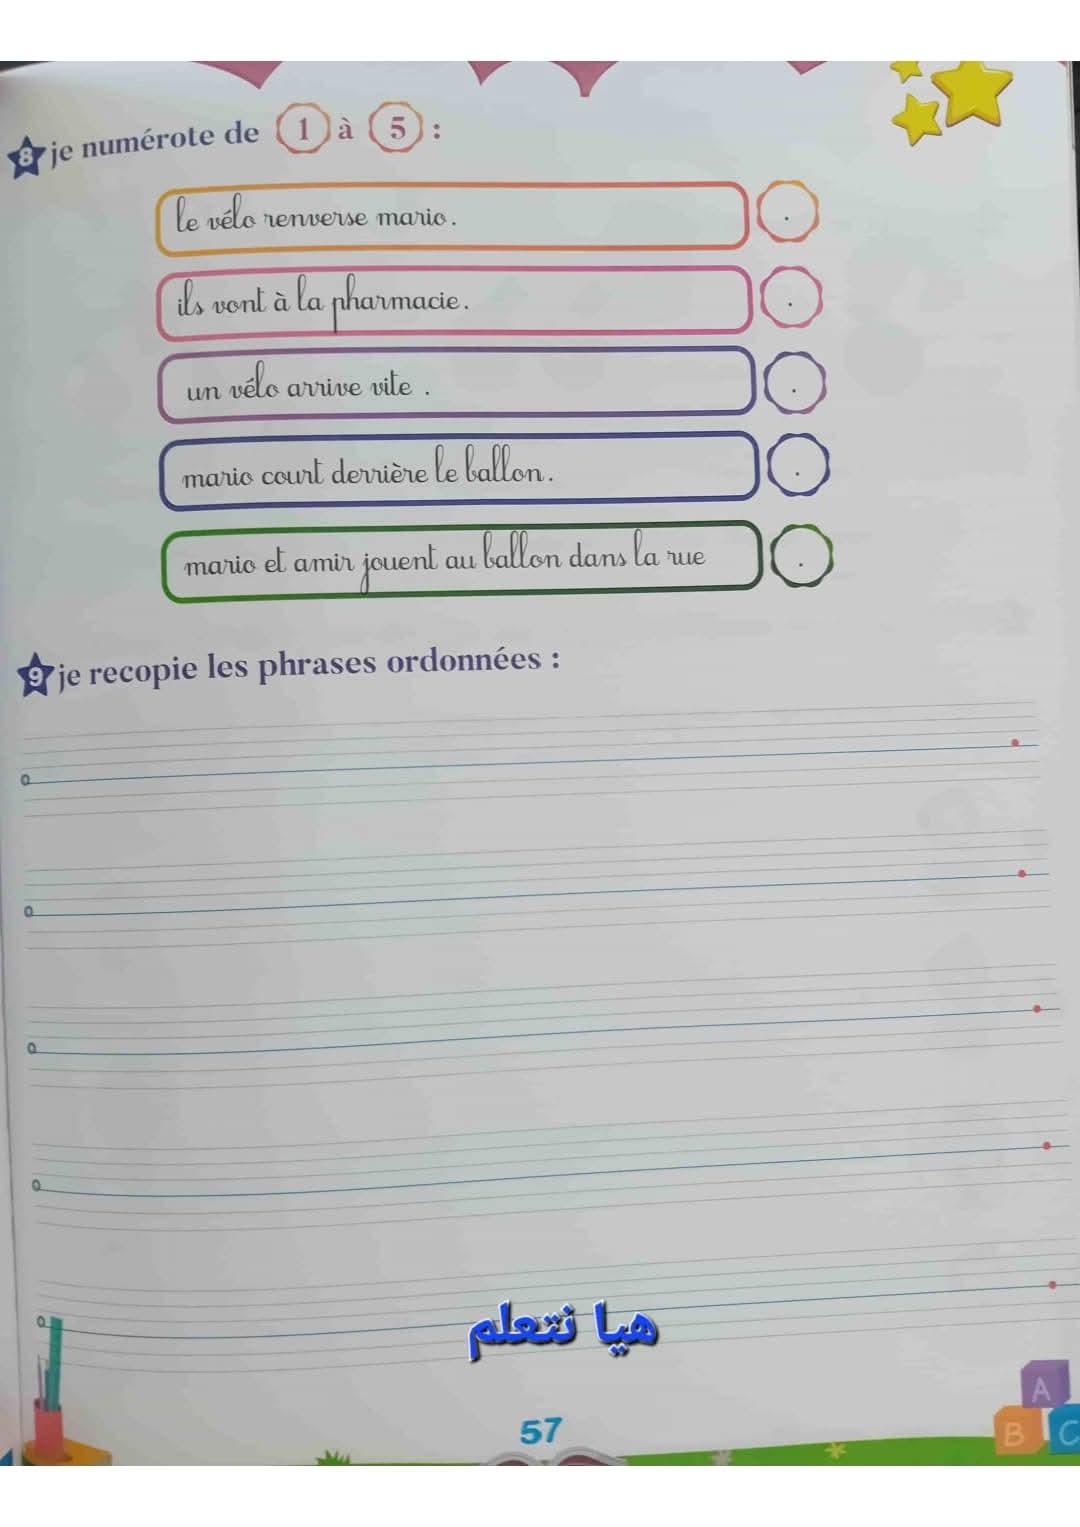 8 je numérote de 1 à 5 :
le vélo renverse mario.
ils vont à la pharmacie.
un vélo arrive vite .
mario court derrière le ballon.
mario et amir jouent au ballon dans la rue
9 je recopie les phrases ordonnées :
هيا نتعلم
57
A
B C